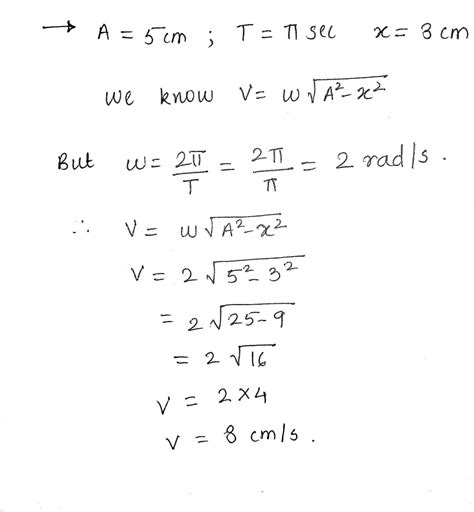 → A = 5 cm ; T = π sec x = 3 cm
we know V = w√(A²-x²)
But w = 2π/T = 2π/π = 2 rad/s .
∴ V = w√(A²-x²)
V = 2 √(5²-3²)
= 2√(25-9)
= 2 √16
V = 2×4
V = 8 cm/s .